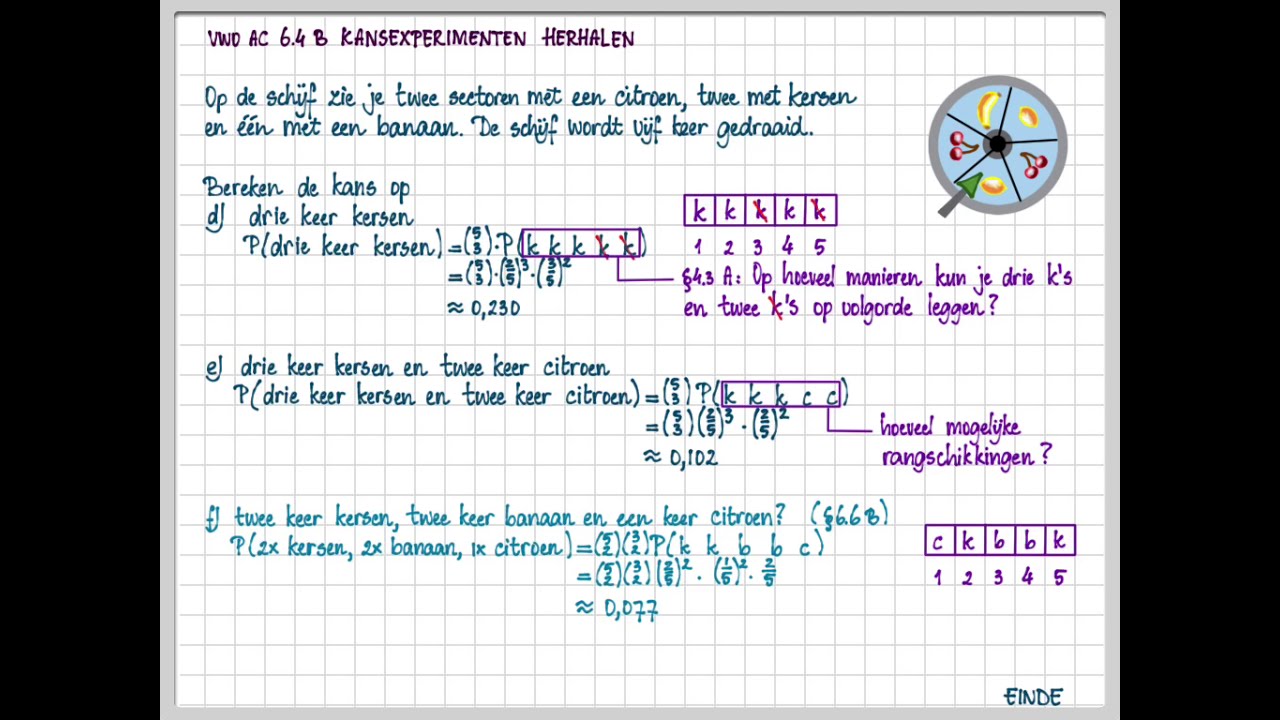 VWO AC 6.4 B KANSEXPERIMENTEN HERHALEN
Op de schijf zie je twee sectoren met een citroen, twee met kersen
en één met een banaan. De schijf wordt vijf keer gedraaid.
Bereken de kans op
d) drie keer kersen
k k k̸ k k̸
P(drie keer kersen) = (5 3) · P(k k k k̸ k̸)
1 2 3 4 5
= (5 3) · (2/5)³ · (3/5)²
§4.3 A: Op hoeveel manieren kun je drie k's
≈ 0,230
en twee k̸'s op volgorde leggen?
e) drie keer kersen en twee keer citroen
P(drie keer kersen en twee keer citroen) = (5 3) P(k k k c c)
= (5 3) (2/5)³ · (2/5)²
hoeveel mogelijke
≈ 0,102
rangschikkingen?
f) twee keer kersen, twee keer banaan en een keer citroen? (§6.6 B)
P(2x kersen, 2x banaan, 1x citroen) = (5 2) (3 2) P(k k b b c)
c k b b k
= (5 2) (3 2) (2/5)² · (1/5)² · 2/5
1 2 3 4 5
≈ 0,077
EINDE